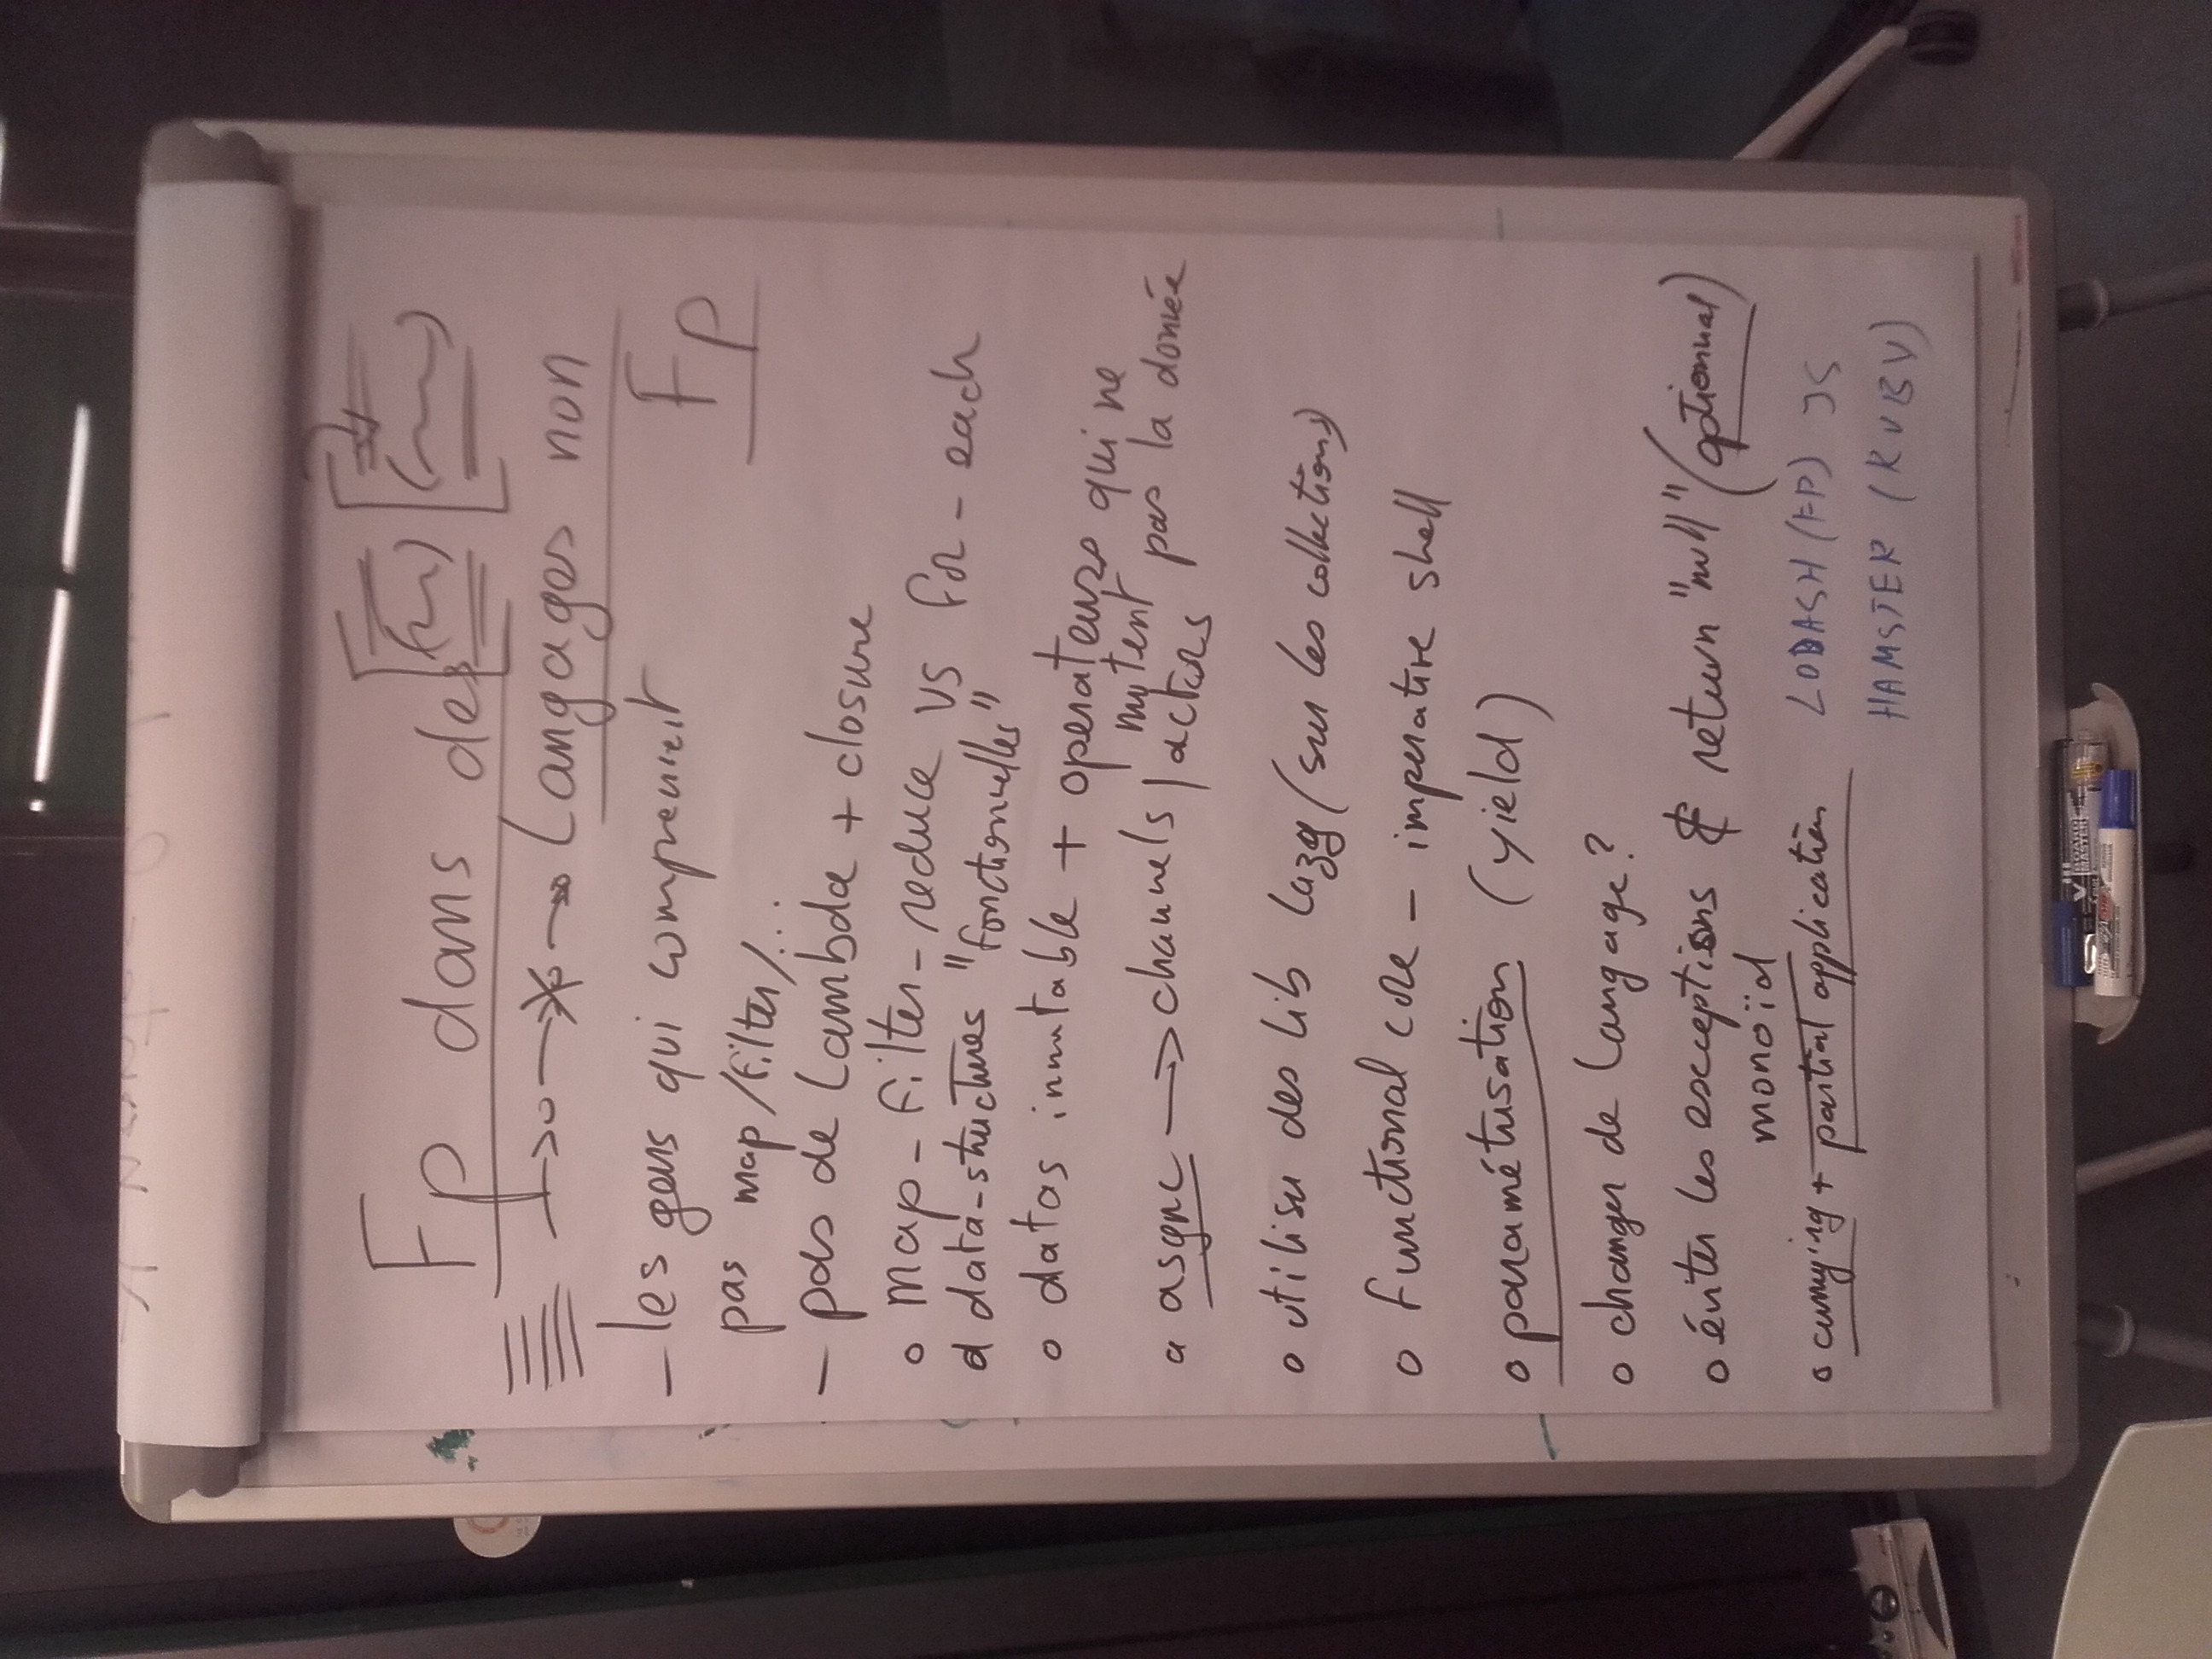 Fp dans des
Langages non
Fp
- les gens qui comprennent
pas map/filter/...
- pas de lambda + closure
o map-filter-reduce vs for-each
o data-structures "fonctionnelles"
o datas immutable + operateurs qui ne
mutent pas la donnée
o async → channels / actors
o utiliser des lib lazy (sur les collections)
o functional core - imperative shell
o paramétrisation (yield)
o changer de langage?
o éviter les exceptions & return "null" (optionnal)
monoïd
o currying + partial application
LODASH (FP) JS
HAMSTER (RUBY)
BOARD
MASTER